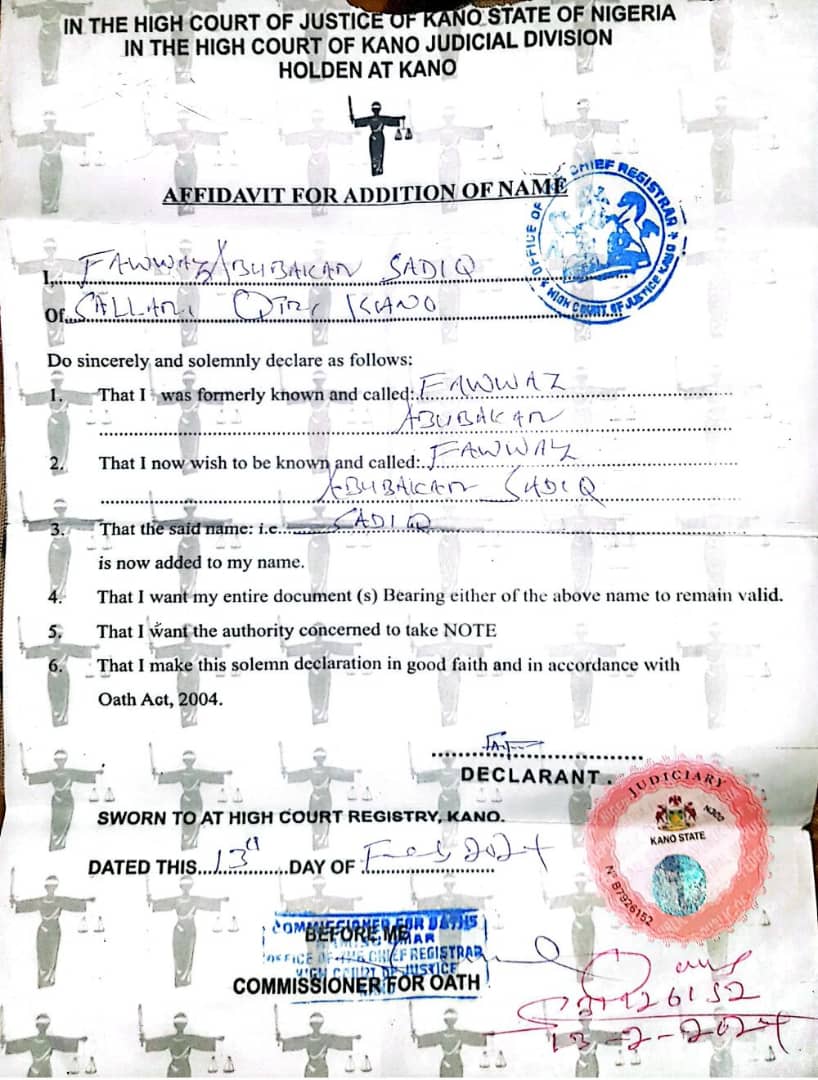 IN THE HIGH COURT OF JUSTICE OF KANO STATE OF NIGERIA
IN THE HIGH COURT OF KANO JUDICIAL DIVISION
HOLDEN AT KANO
AFFIDAVIT FOR ADDITION OF NAME
OFFICE OF CHIEF REGISTRAR
HIGH COURT OF JUSTICE KANO
I, FAWWAZ ABUBAKAR SADIQ
Of SALLARI KANO
Do sincerely and solemnly declare as follows:
1. That I was formerly known and called: FAWWAZ
ABUBAKAR
2. That I now wish to be known and called: FAWWAZ
ABUBAKAR SADIQ
3. That the said name: i.e. SADIQ
is now added to my name.
4. That I want my entire document (s) Bearing either of the above name to remain valid.
5. That I want the authority concerned to take NOTE
6. That I make this solemn declaration in good faith and in accordance with
Oath Act, 2004.
DECLARANT.
JUDICIARY
N200
KANO STATE
Nº B7926152
SWORN TO AT HIGH COURT REGISTRY, KANO.
DATED THIS 13th DAY OF Feb 2024
COMMISSIONER FOR OATHS
BEFORE ME
OFFICE OF THE CHIEF REGISTRAR
HIGH COURT OF JUSTICE
COMMISSIONER FOR OATH
B7926152
13-2-2024